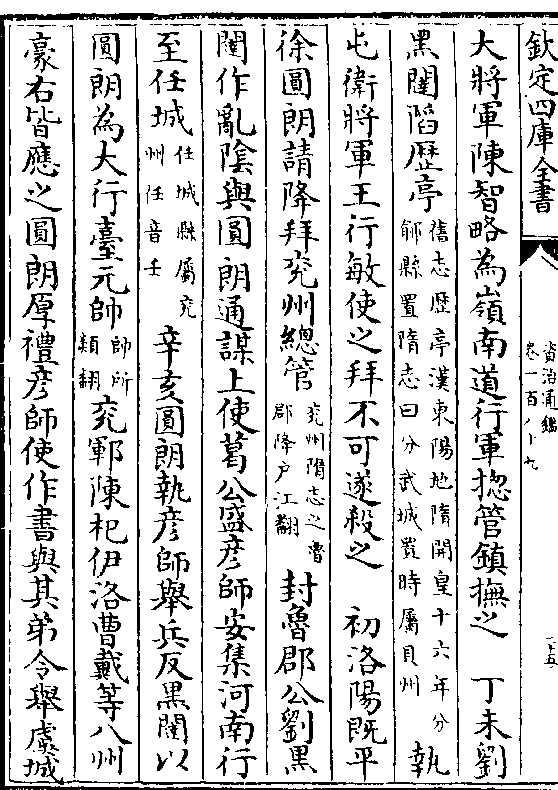 欽定四庫全書
資治通鑑
卷一百八十九
二十五
大將軍陳智略為嶺南道行軍揔管鎮撫之　丁未劉
黑闥䧟歴亭舊志歴亭漢東陽地隋開皇十六年分鄃縣置隋志曰分武城置時屬貝州執
屯衛將軍王行敏使之拜不可遂殺之　初洛陽既平
徐圓朗請降拜兖州總管兖州隋志之魯郡降户江翻封魯郡公劉黑
闥作亂陰與圓朗通謀上使葛公盛彦師安集河南行
至任城任城縣屬兖州任音壬辛亥圓朗執彦師舉兵反黑闥以
圓朗為大行臺元帥帥所類翻兖鄆陳杞伊洛曹戴等八州
豪右皆應之圓朗厚禮彦師使作書與其弟令舉虞城